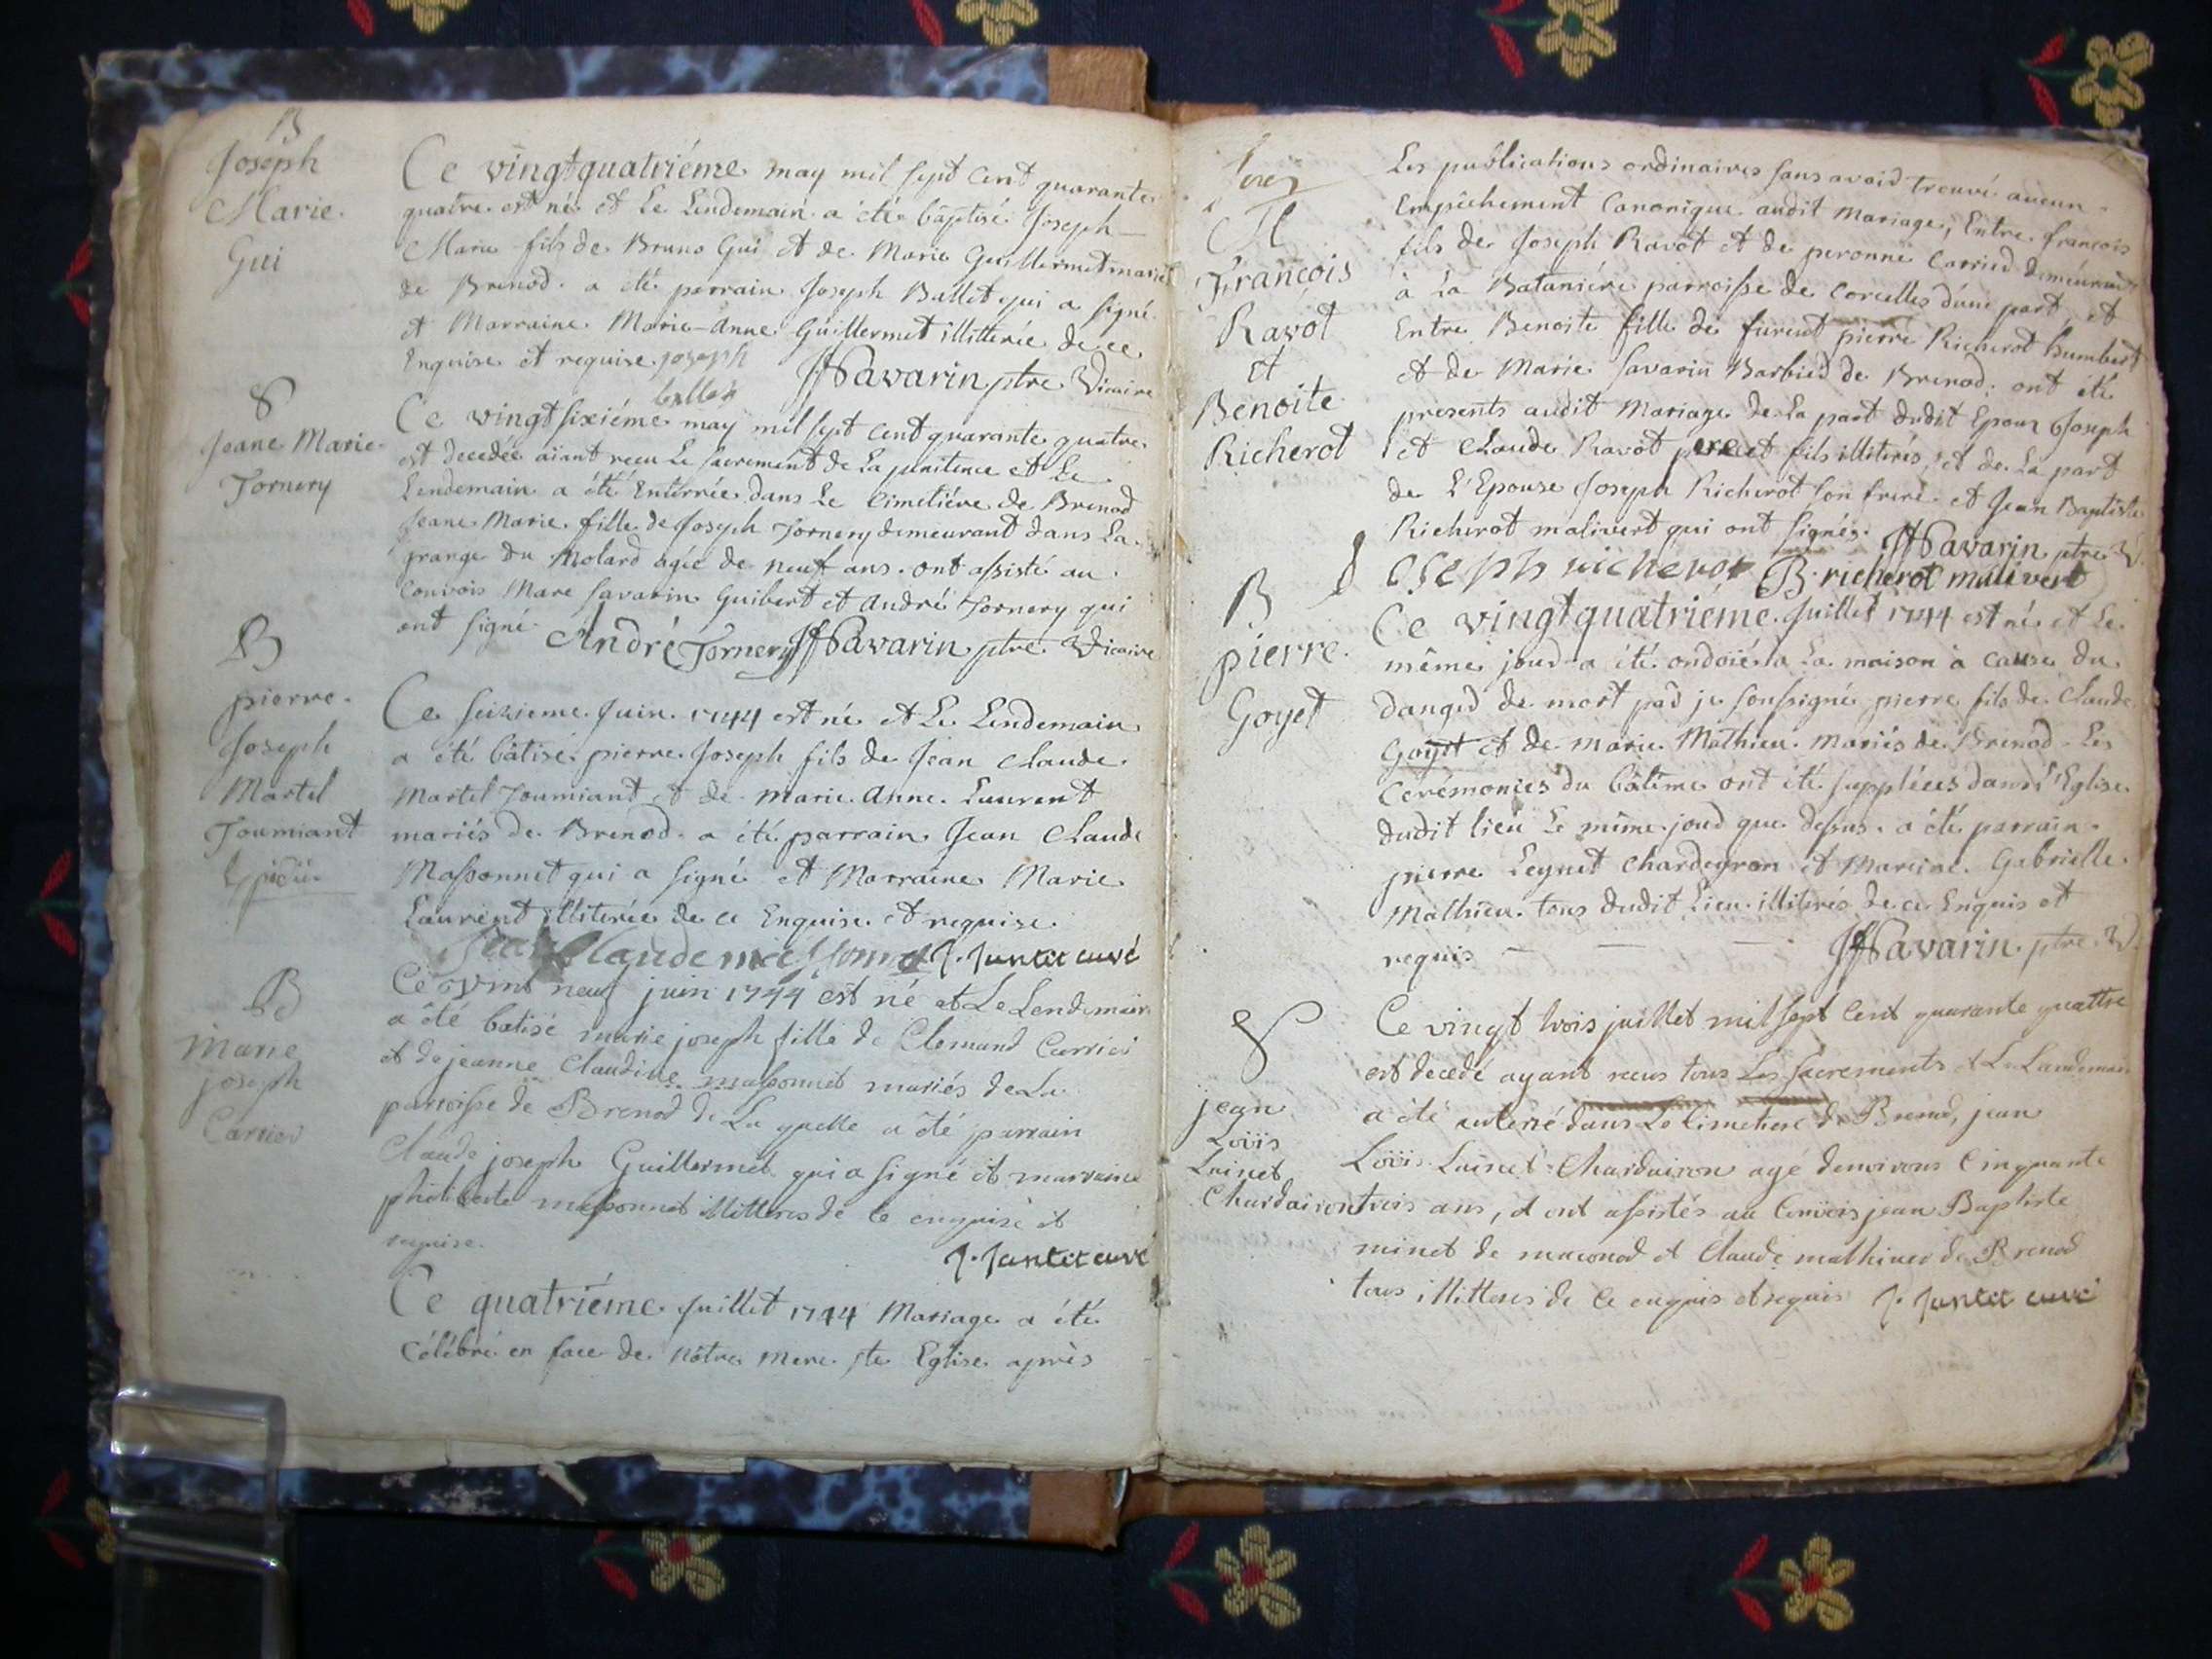 B
Joseph
Marie
Gui
Ce vingtquatriéme may mil sept cent quarante
quatre est né et le Lendemain a été baptisé Joseph
Marie fils de Bruno Gui et de Marie Guillermet mariés
de Brenod. a été parrain Joseph Ballet qui a signé
et Marraine Marie-Anne Guillermet illitterée de ce
Enquise et requise. joseph
ballet
JfSavarin ptre Vicaire
S
Jeane Marie
Tornery
Ce vingt sixiéme may mil sept cent quarante quatre
est decedée aiant recu le sacrement de la penitence et Le
Lendemain a été Enterrée dans le Cimetiére de Brenod
Jeane Marie fille de Joseph Tornery demeurant dans La
grange du Molard agée de neuf ans. ont assisté au
Convois Marc Savarin Guibert et André Tornery qui
ont signé. André Tornery JfSavarin ptre Vicaire
B
pierre
Joseph
Martel
Toumiant
Ce seizieme Juin 1744 est né et Le Lendemain
a été bâtisé pierre Joseph fils de Jean Claude
Martel Toumiant et de marie Anne Laurent
mariés de Brenod. a été parrain Jean Claude
Massonnet qui a signé et Marraine Marie
Laurent illiterée de ce Enquise et requise.
Jean Claude massonnet J. Jantet curé
B
marie
joseph
Carrier
Ce vint neuf juin 1744 est né et Le Lendemain
a été batisé marie joseph fille de Clemand Carrier
et de jeanne Claudine massonnet mariés de La
parroisse de Brenod de La quelle a été parrain
Claude joseph Guillermet qui a signé et marraine
philiberte massonnet illitteres de ce enquise et
requise. J. Jantet curé
Ce quatriéme Juillet 1744 Mariage a été
Célébré en face de nôtre mere ste Eglise après
Les publications ordinaires sans avoir trouvé aucun
Empêchement Canonique audit Mariage, Entre francois
fils de Joseph Ravot et de peronne Carrier demeurant
à La Bataniére parroisse de Corcelles d'une part, et
Entre Benoite fille de furent pierre Richerot humbert
et de Marie Savarin Barbier de Brenod. ont été
presents audit Mariage de La part dudit Epoux Joseph
et Claude Ravot pere et fils illiterés, et de La part
de L'Epouse Joseph Richerot son frere et Jean Baptiste
Richerot malivert qui ont signés. JfSavarin ptre V.
Joseph richerot B. richerot malivert
M
François
Ravot
et
Benoite
Richerot
B
pierre
Goyet
Ce vingtquatriéme Juillet 1744 est né et Le
même jour a été ondoié a La maison à cause du
danger de mort par je soussigné pierre fils de Claude
Goyet et de marie Mathieu mariés de Brenod. Les
Cérémonies du bâtême ont été supplées dans l'Eglise
dudit lieu Le même jour que dessus. a été parrain
pierre Leynet Chardeyron et Mareine Gabrielle
Mathieu. tous dudit Lieu illiterés de ce Enquis et
requis JfSavarin ptre V.
S
jean
Loüis
Lainet
Chardairon
Ce vingt trois juillet mil sept cent quarante quattre
est decedé ayant receus tous Les sacrements et Le Landemain
a été enterré dans Le Cimetiere de Brenod, jean
Loüis Lainet Chardairon agé denvirons Cinquante
trois ans, et ont assistés au Convois jean Baptiste
minet de maconod et Claude mathieu de Brenod
tous illitteres de ce enquis et requis J. Jantet curé